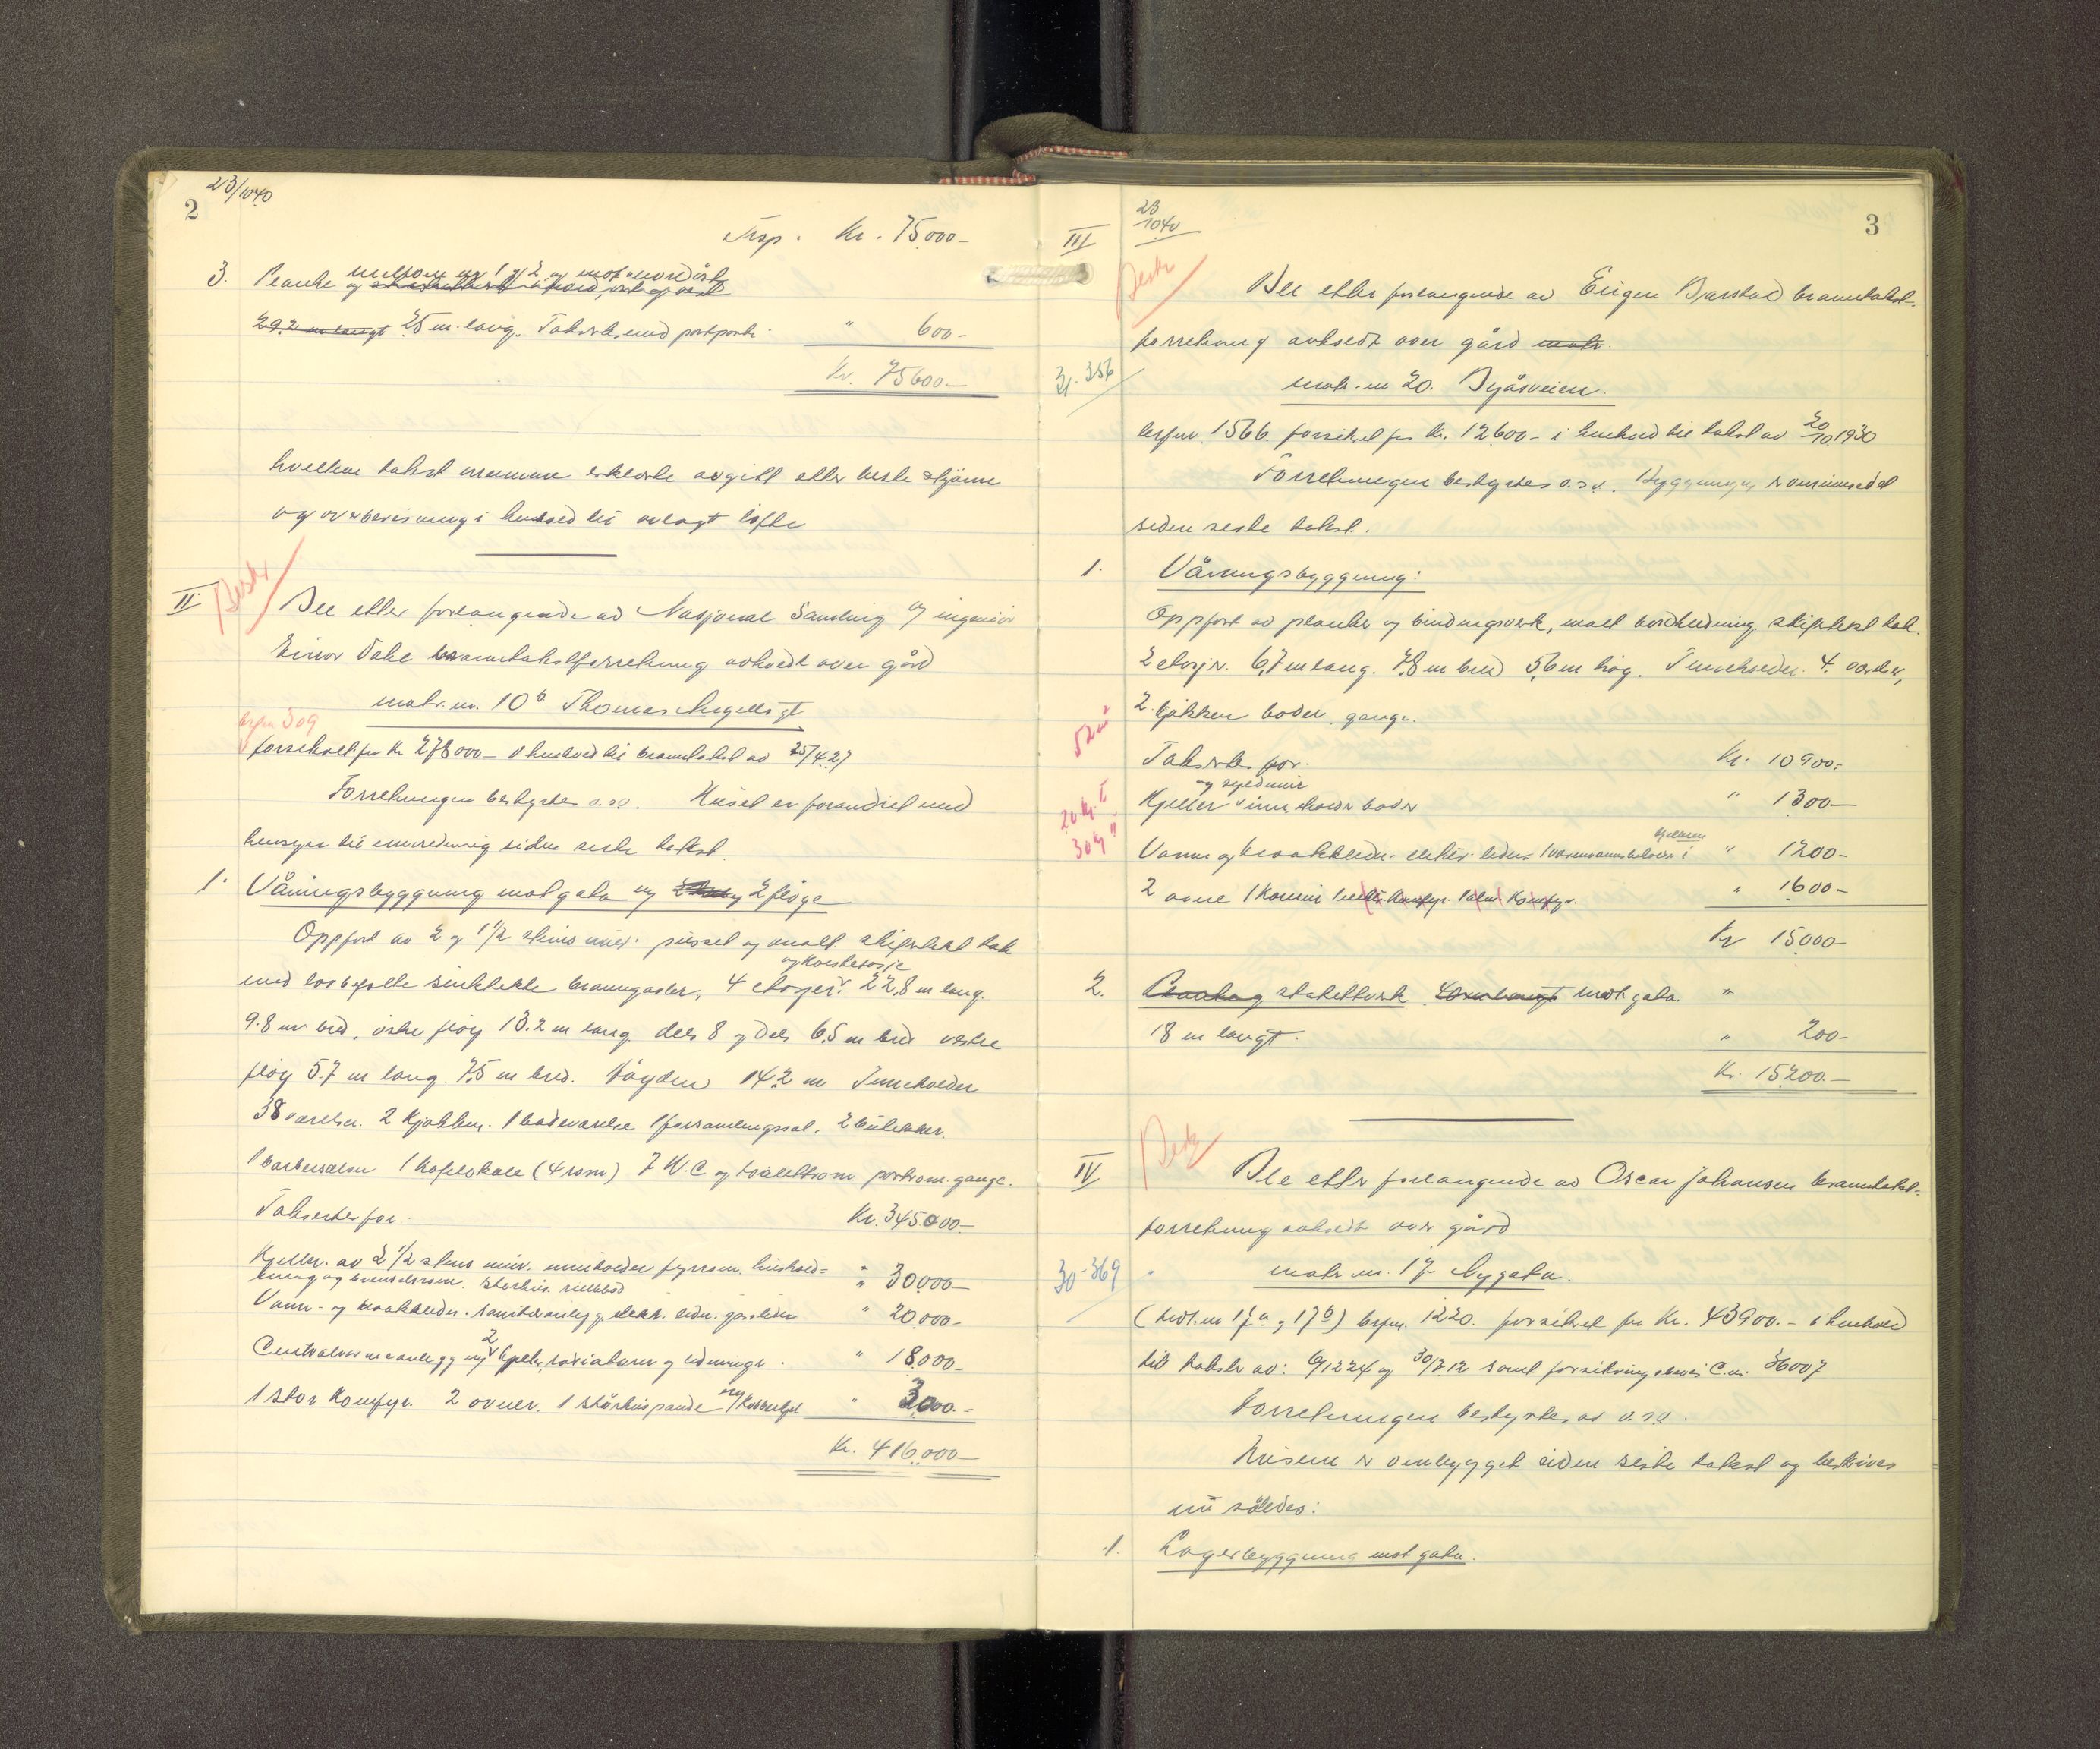 2
23/10 40
Trsp. Kr. 75000-
3. Planke og mellem nr 1 og 2 og mot nordöst
29.2 m langt 25 m. lang. Takseres med port
" 600-
Kr. 75600-
hvilken takst mennene erklærte avgitt etter beste skjönn
og overbevisning i henhold til avlagt löfte
II Besk
Ble etter forlangende av Nasjonal Samling og ingeniör
Einar Dahl branntakstforretning avholdt over gård
matr. nr. 10b Thomas Angellsgt
brfnr 309
forsikret for Kr 278000- i henhold til branntakst av 25/4.27
Forretningen bestyrtes o.s.v. Huset er forandret med
hensyn til innredning siden siste takst.
1. Våningsbyggning mot gata og 2 flöye
Oppfört av 2 og 1½ stens mur. pusset og malt skifertekt tak
og kvistetasje
med sinktekte branngavler, 4 etasjer. 22,8 m lang.
9.8 m. bred, östre flöy 13.2 m lang dels 8 og dels 6,5 m bred vestre
flöy 5.7 m lang. 7,5 m bred. Höyden 14.2 m Inneholder
38 værelser. 2 kjökken. 1 badeværelse 1 forsamlingssal. 2 butikker.
1 barbersalon 1 kafelokale (4 rom) 7 W.C og toalettrom. portrom. gange.
Takseres for. Kr. 345000-
Kjeller. av 2½ stens mur. inneholder fyrrom. hushold=
" 30000-
Vann- og kloakkledn. sanitæranlegg. elektr. ledn. gassledn " 20,000-
Centralvarmeanlegg m/ 2 kjeler, radiatorer og ledninger. " 18.000-
1 stor Komfyr. 2 ovner. 1 " 3000.-
Kr. 416.000-
3
23
10 40
III Besk
Ble etter forlangende av Eugen Bjarstad branntakst-
forretning avholdt over gård matr.
31-356
matr. nr 20. Byåsveien.
brfnr. 1566 forsikret for kr. 12600- i henhold til takst av 20/10.1930
Forretningen bestyrtes o.s.v. Byggningen er ominnredet
siden siste takst.
1. Våningsbyggning:
Oppfört av planker og bindingsverk, malt bordkledning, skifertekt tak.
2 etasjer. 6,7 m lang. 7.8 m bred 5,6 m höy. Inneholder. 4. værelser,
2 kjökken boder, gange.
52 m²
Takseres for. Kr. 10900.-
og syldmur
Kjeller inneholder boder " 1300-
Vann og kloakkledn. elektr. ledn. 1 varmvannsbeholder i kjelleren " 1200-
2 ovne 1 Kamin 1 elektr. Komfyr. 1 alm. Komfyr. " 1600-
Kr 15000-
2. Planke og stakittverk mot gata. "
18 m langt. " 200-
Kr. 15200.-
IV Besk
Ble etter forlangende av Oscar Johansen branntakst-
forretning avholdt over gård
30-369
matr. nr. 17 Nygata.
(tidl. nr 17a og 17b) brfnr. 1220. forsikret for Kr. 43900.- i henhold
til takster av: 6/12 24 og 30/7 12 samt forsikringsbevis C. nr. 36007
Forretningen bestyrtes av o.s.v.
Husene er ombygget siden siste takst og beskrives
nu således:
1. Lagerbyggning mot gata.